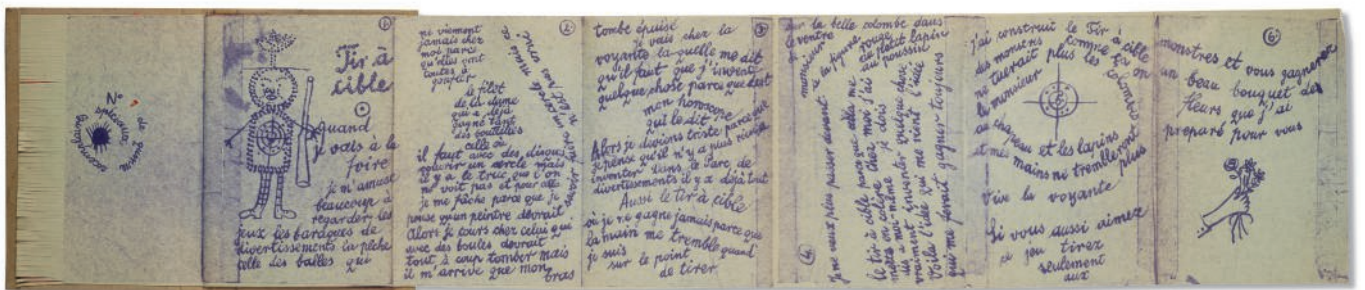 exemplaire N° de quinze épreuves
1
Tir à
cible
quand
je vais à la
foire
je m'amuse
beaucoup à
regarder les
jeux les baraques de
divertissements la pêche
celle des balles qui
2
ne viennent
jamais chez
moi parce
qu'elles ont
toutes à
le filet
de la dame
qui a déjà
gagné tant
des bouteilles
celle où
il faut avec des disques
couvrir un cercle mais
il y a le truc que l'on
ne voit pas et pour cela
je me fâche parce que je
pense qu'un peintre devrait
savoir
Alors je cours chez celui qui
avec des boules devrait
tout à coup tomber mais
il m'arrive que mon
bras
3
tombe épuisé
je vais chez la
voyante laquelle me dit
qu'il faut que j'invente
quelque chose parce que c'est
mon horoscope
qui le dit
Alors je deviens triste parce que
je pense qu'il n'y a plus rien à
inventer dans le Parc de
divertissements il y a déjà tout
Aussi le tir à cible
où je ne gagne jamais parce que
la main me tremble quand
je suis
sur le point
de tirer
4
sur la belle colombe dans
le ventre
monsieur
à la pipe rouge
au petit lapin
au poussin
Je ne veux plus passer devant
le tir à cible parce que cela me
met en colère chez moi j'ai
dit à moi-même je dois
vraiment inventer quelque chose
Voilà l'idée qui me vient l'idée
qui me ferait gagner toujours
j'ai construit le Tir à cible
des monstres comme ça on
ne tuerait plus les colombes
le monsieur
au chapeau et les lapins
et mes mains ne trembleront plus
Vive la voyante
Si vous aussi aimez
ce jeu tirez
seulement
aux
6
monstres et vous gagnerez
un beau bouquet des
fleurs que j'ai
preparé pour vous